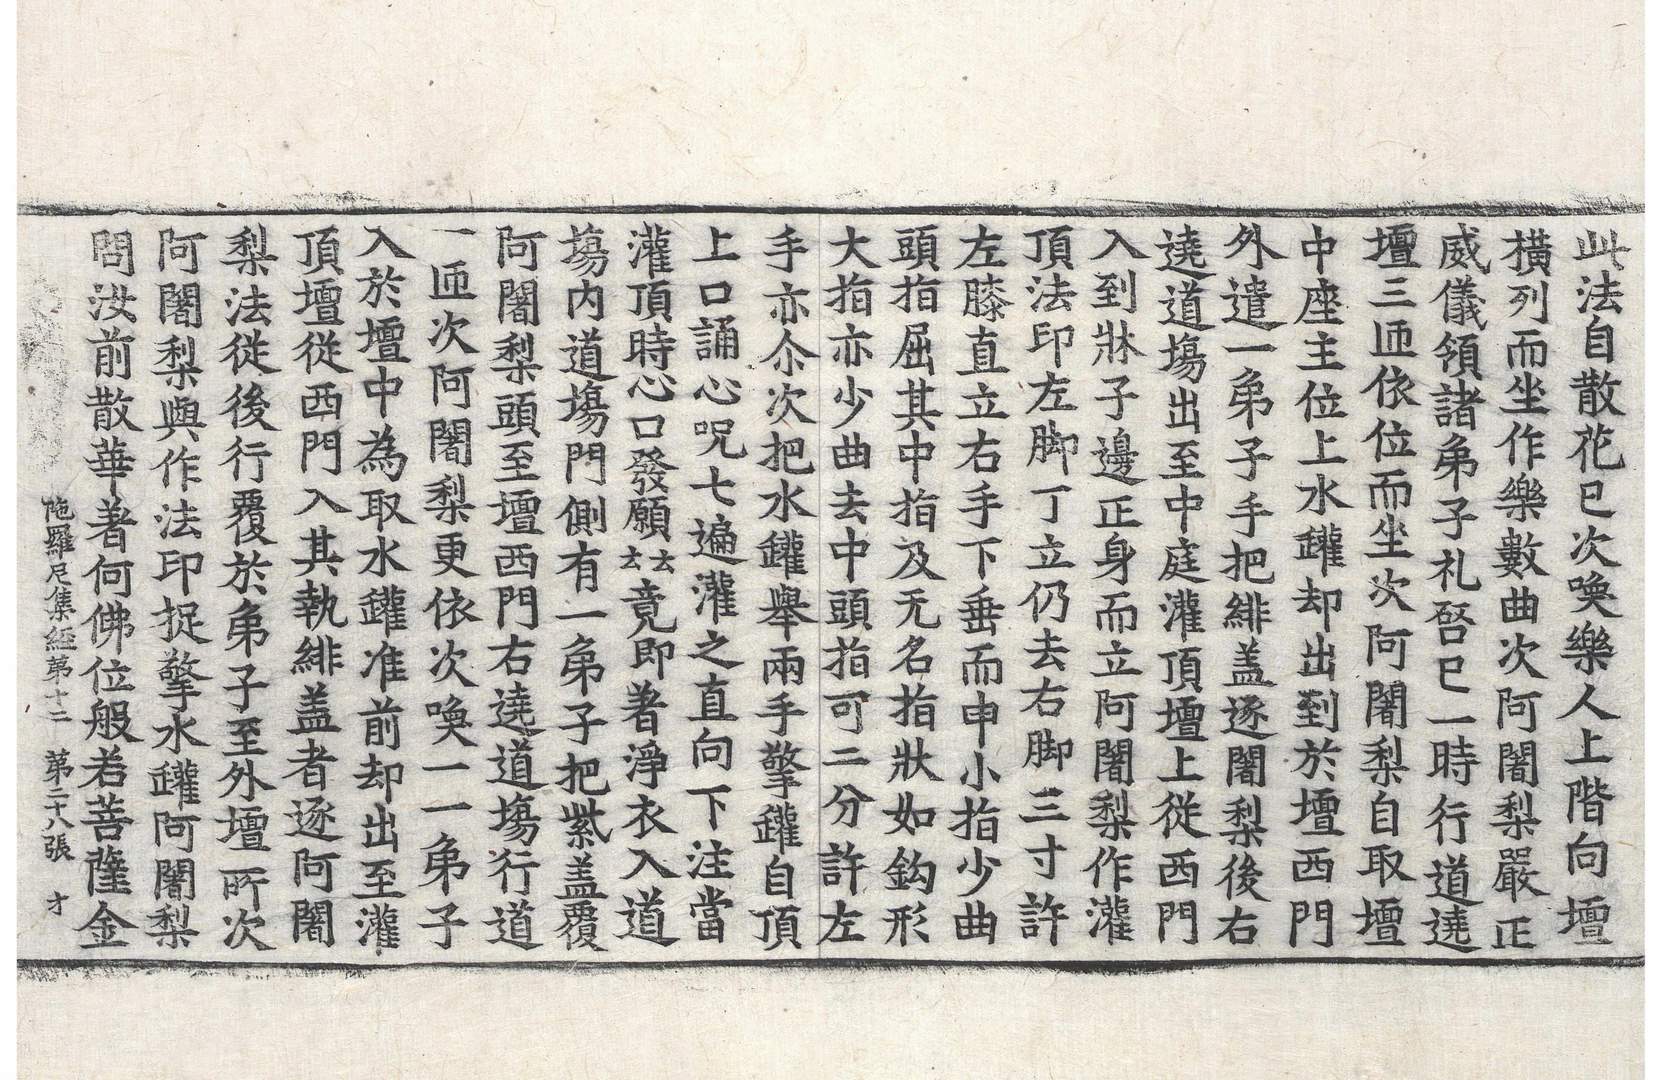 此法自散花已次喚樂人上階向壇
橫列而坐作樂數曲次阿闍梨嚴正
威儀領諸弟子礼啓已一時行道遶
壇三匝依位而坐次阿闍梨自取壇
中座主位上水鑵却出到於壇西門
外遣一弟子手把緋盖逐闍梨後右
遶道塲出至中庭灌頂壇上從西門
入到牀子邊正身而立阿闍梨作灌
頂法印左脚丁立仍去右脚三寸許
左膝直立右手下垂而申小指少曲
頭指屈其中指及无名指狀如鈎形
大指亦少曲去中頭指可二分許左
手亦尒次把水鑵舉兩手擎鑵自頂
上口誦心呪七遍灌之直向下注當
灌頂時心口發願云云竟即著淨衣入道
塲內道塲門側有一弟子把紫盖覆
阿闍梨頭至壇西門右遶道塲行道
一匝次阿闍梨更依次喚一一弟子
入於壇中為取水鑵准前却出至灌
頂壇從西門入其執緋盖者逐阿闍
梨法從後行覆於弟子至外壇所次
阿闍梨與作法印捉擎水鑵阿闍梨
問汝前散華著何佛位般若菩薩金
陁羅尼集經第十二 第二十八張 才